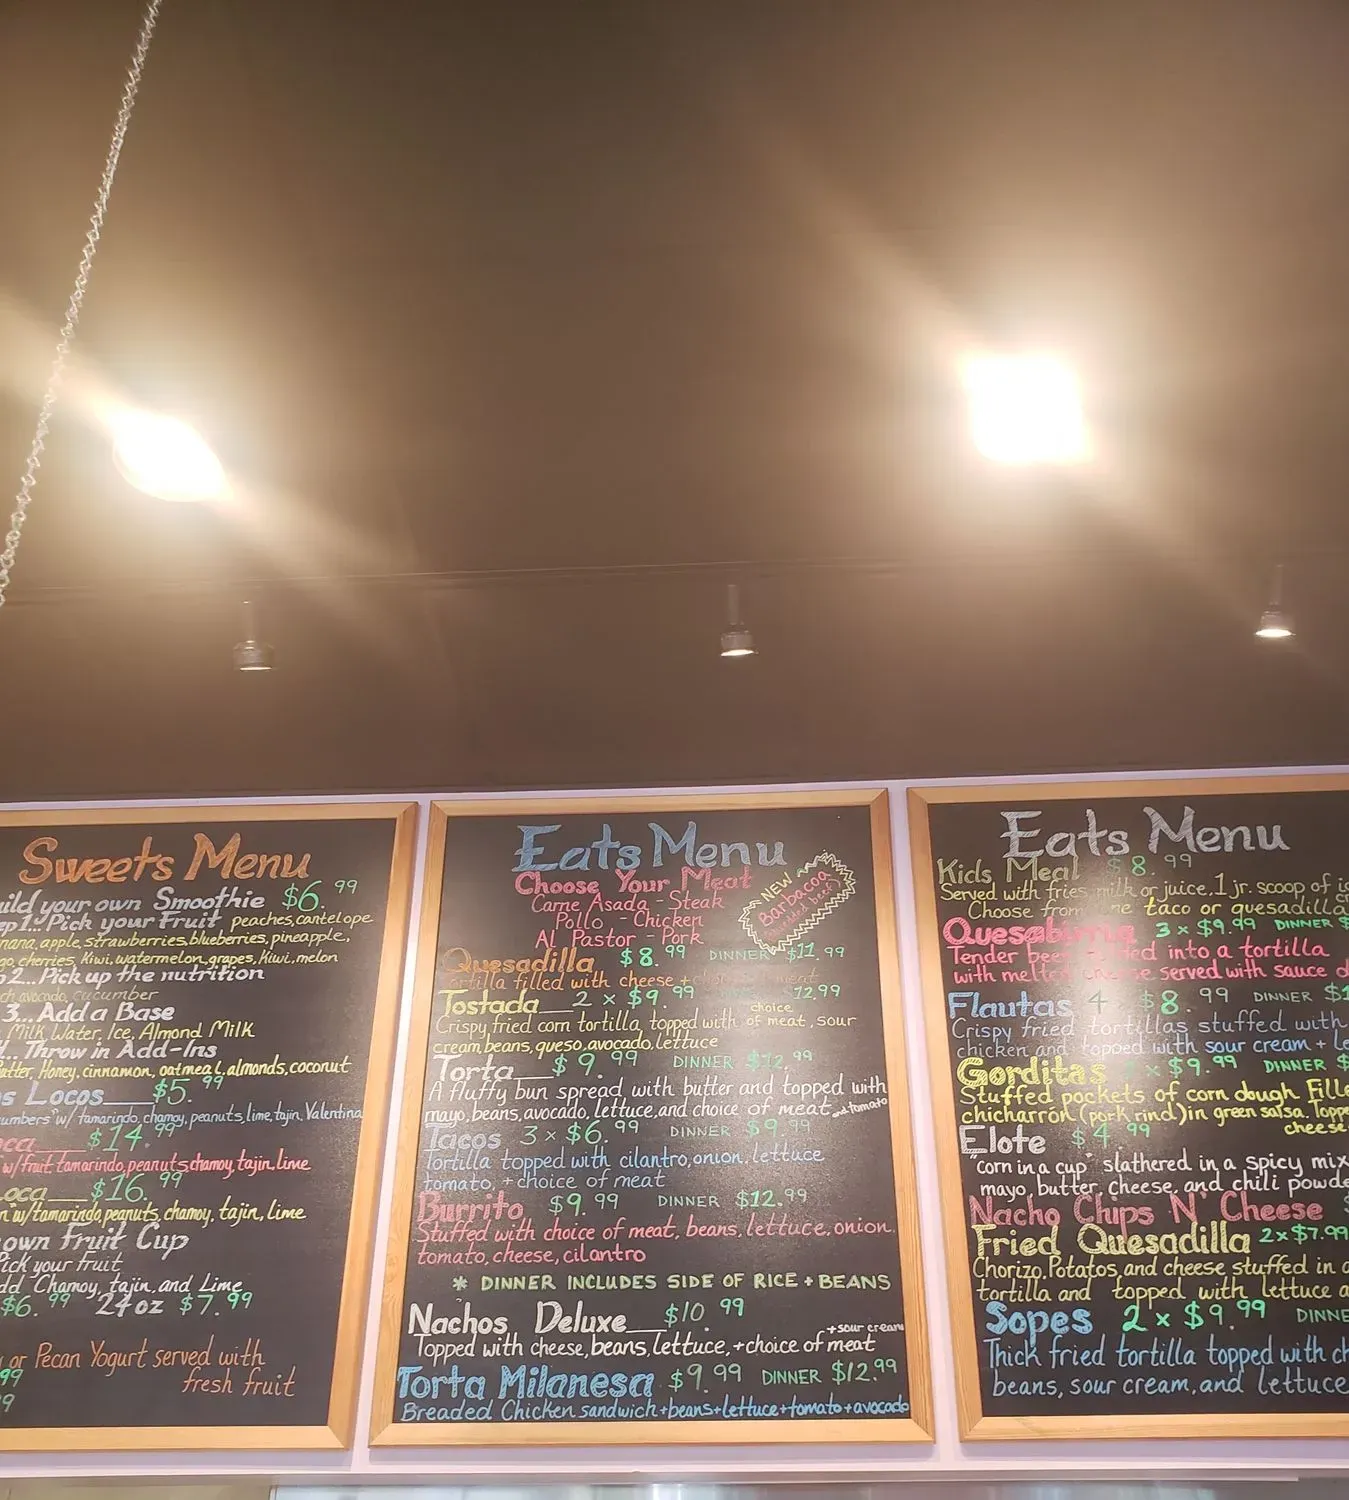 Sweets Menu
ild your own Smoothie $6.99
ep 1... Pick your Fruit peaches, cantelope
nana, apple, strawberries, blueberries, pineapple,
go, cherries, Kiwi, watermelon, grapes, Kiwi, melon
2... Pick up the nutrition
ch avocado, cucumber
3... Add a Base
Milk, Water, Ice, Almond Milk
... Throw in Add-Ins
utter, Honey, cinnamon, oatmeal, almonds, coconut
s Locos $5.99
umbers w/ tamarindo, chamoy, peanuts, lime, tajin, Valentina
oca $14.99
w/fruit, tamarindo, peanuts, chamoy, tajin, lime
oca $16.99
n w/tamarindo, peanuts, chamoy, tajin, lime
own Fruit Cup
Pick your fruit
dd Chamoy, tajin, and Lime
$6.99 24oz $7.99
or Pecan Yogurt served with
99 fresh fruit
9
Eats Menu
Choose Your Meat
Carne Asada - Steak
Pollo - Chicken
Al Pastor - Pork
NEW
Barbacoa
Quesadilla $8.99 DINNER $11.99
tortilla filled with cheese +
Tostada 2 x $9.99 12.99
Crispy fried corn tortilla topped with choice of meat, sour
cream, beans, queso, avocado, lettuce
Torta $9.99 DINNER $12.99
A fluffy bun spread with butter and topped with
mayo, beans, avocado, lettuce, and choice of meat and tomato
Tacos 3 x $6.99 DINNER $9.99
Tortilla topped with cilantro, onion, lettuce
tomato, + choice of meat
Burrito $9.99 DINNER $12.99
Stuffed with choice of meat, beans, lettuce, onion.
tomato, cheese, cilantro
* DINNER INCLUDES SIDE OF RICE + BEANS
Nachos Deluxe $10.99
Topped with cheese, beans, lettuce, + choice of meat + sour cream
Torta Milanesa $9.99 DINNER $12.99
Breaded Chicken sandwich + beans + lettuce + tomato + avocado
Eats Menu
Kids Meal $8.99
Served with fries, milk or juice, 1 jr. scoop of ic
Choose from one taco or quesadilla
Quesabirria 3 x $9.99 DINNER $
Tender beef into a tortilla
with melted cheese served with sauce d
Flautas 4 $8.99 DINNER $1
Crispy fried tortillas stuffed with
chicken and topped with sour cream + le
Gorditas x $9.99 DINNER $
Stuffed pockets of corn dough Fille
chicharrón (pork rind) in green salsa. Toppe
cheese
Elote $4.99
"corn in a cup" slathered in a spicy mix
mayo, butter, cheese, and chili powde
Nacho Chips N' Cheese
Fried Quesadilla 2x$7.99
Chorizo, Potatos, and cheese stuffed in a
tortilla and topped with lettuce a
Sopes 2 x $9.99 DINNE
Thick fried tortilla topped with ch
beans, sour cream, and lettuce